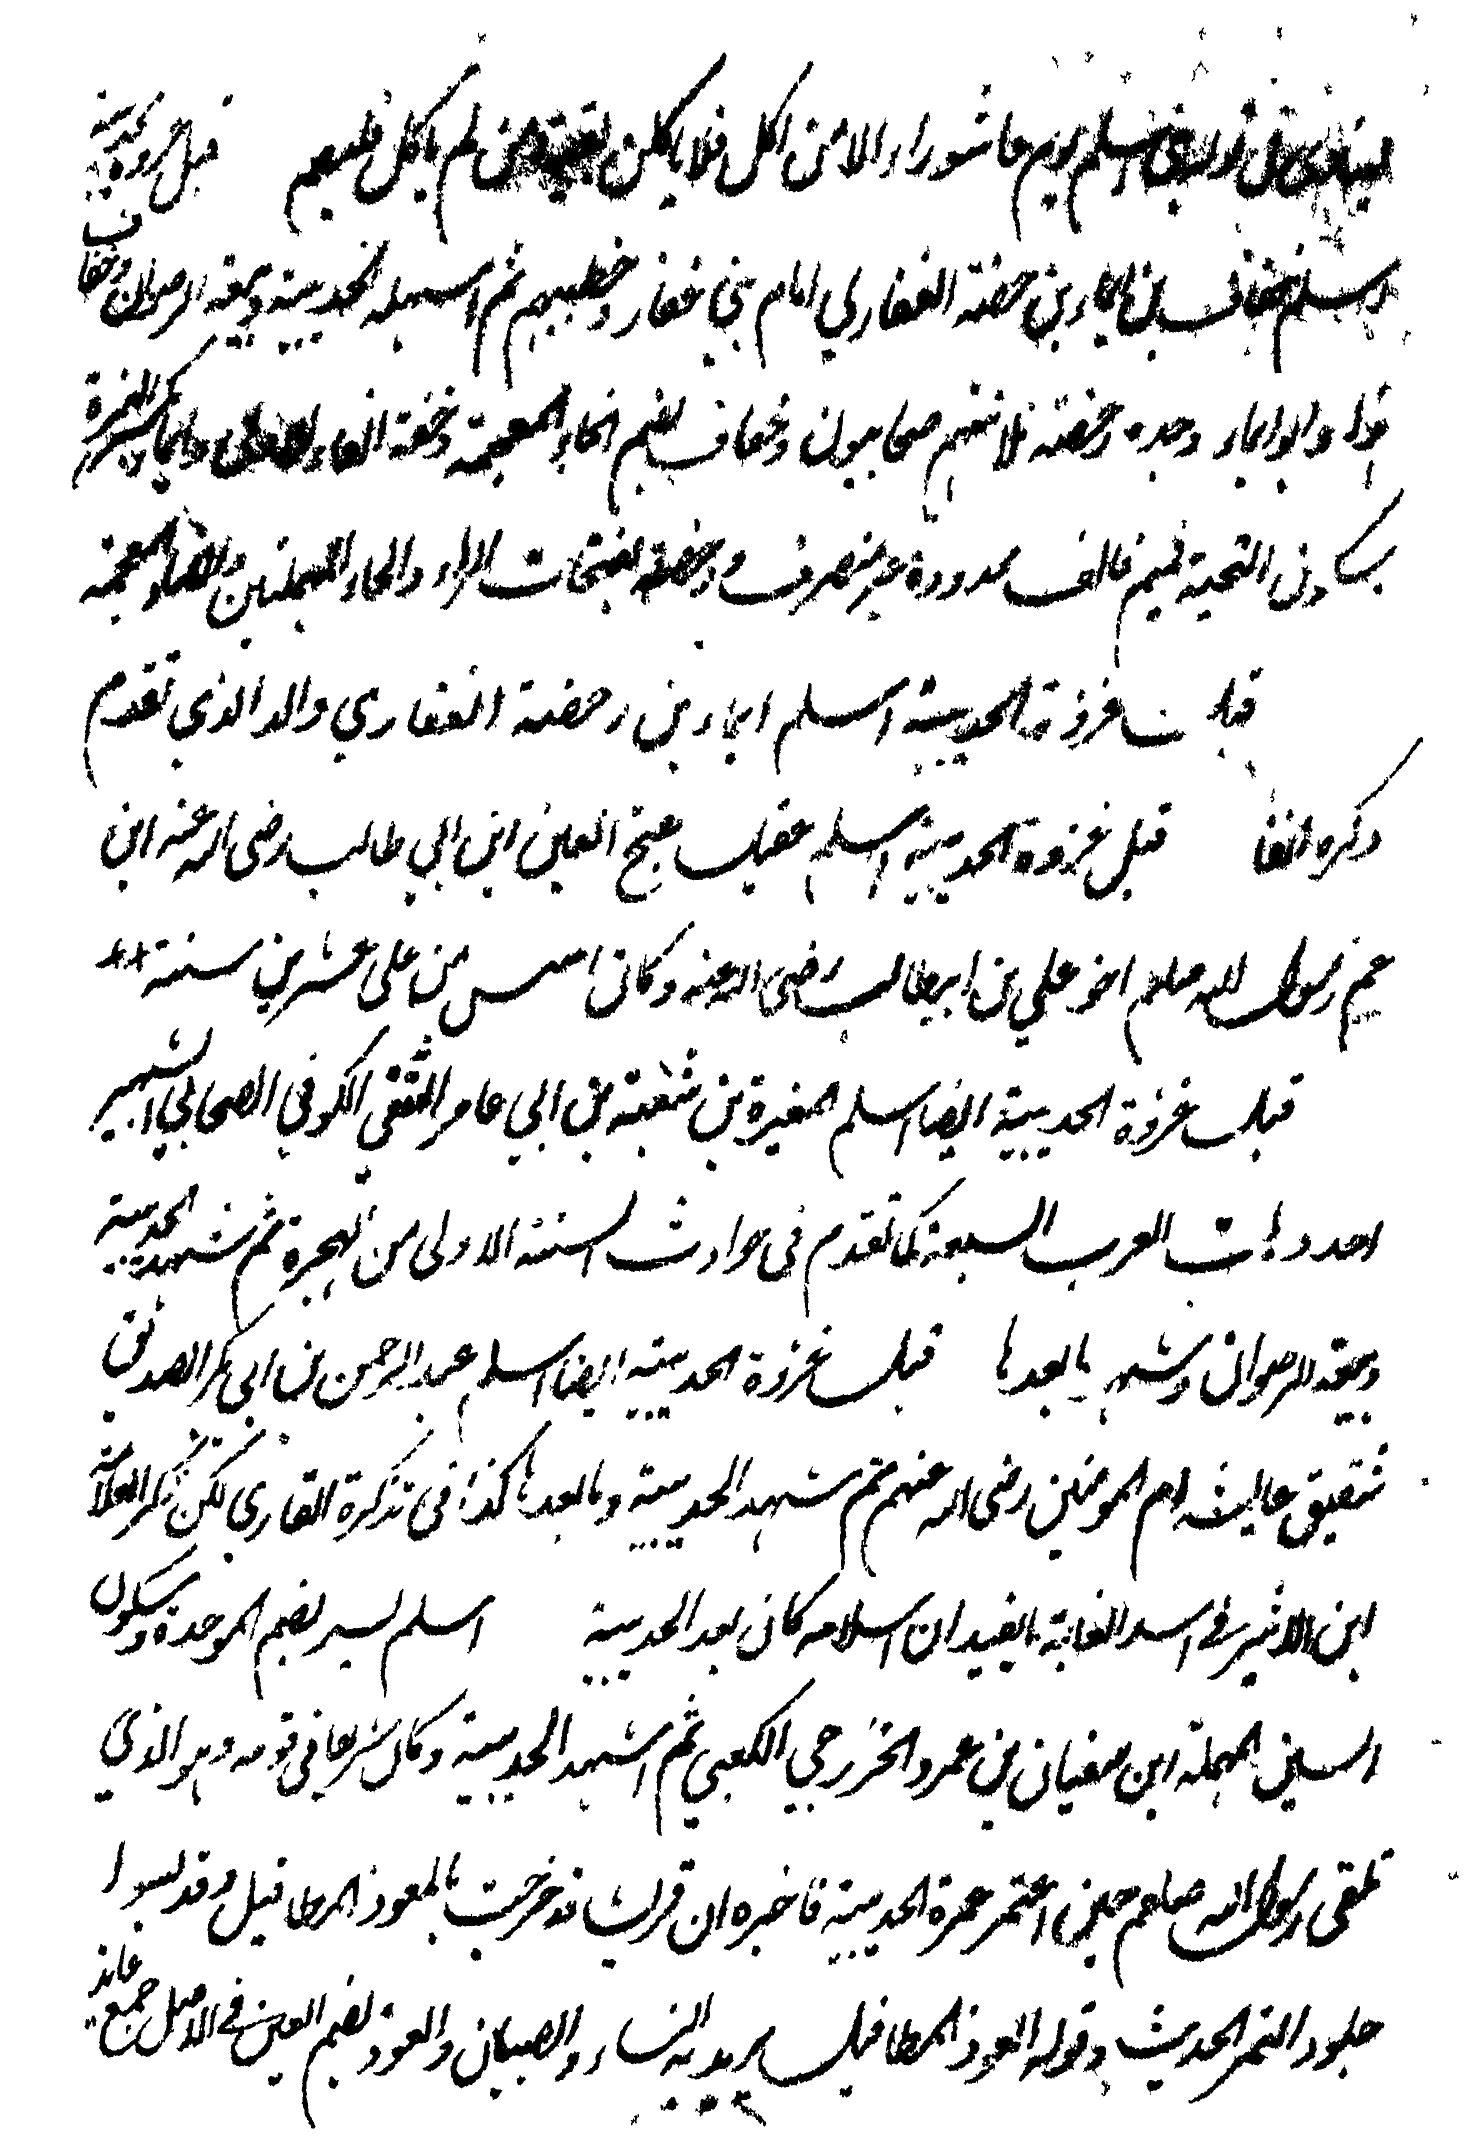 فينادى في قومه بني اسلم يوم عاشوراء الا من اكل فلا ياكلن بقية ومن لم ياكل فليصم قبل غزوة الحديبية
اسلم خفاف بن ايماء بن رحضة الغفاري امام بني غفار وخطيبهم ثم شهد الحديبية وبيعة الرضوان وخفاف
هذا وابوه ايماء وجده رحضة ثلاثتهم صحابيون وخفاف بضم الخاء المعجمة وخفة الفاء الاولى وايماء بكسر الهمزة
بسكون التحتية فميم فالف ممدودة غير منصرف ورحضة بفتحات الراء والحاء المهملتين والضاد المعجمة
قبل غزوة الحديبية اسلم ايماء بن رحضة الغفاري والد الذي تقدم
ذكره انفا قبل غزوة الحديبية اسلم عقيل بفتح العين ابن ابي طالب رضى الله عنه ابن
عم رسول الله صلعم اخو علي بن ابيطالب رضى الله عنه وكان اسن من على عشرين سنة
قبل غزوة الحديبية ايضا اسلم المغيرة بن شعبة بن ابي عامر الثقفي الكوفي الصحابي الشهير
احد دهات العرب السبعة كما تقدم فى حوادث السنة الاولى من الهجرة ثم شهد الحديبية
وبيعة الرضوان وشهد ما بعدها قبل غزوة الحديبية ايضا اسلم عبد الرحمن بن ابى بكر الصديق
شقيق عايشة ام المومنين رضى الله عنهم ثم شهد الحديبية وما بعدها كذا فى تذكرة القارى لكن ذكر العلامة
ابن الاثير في اسد الغابة ما يفيد ان اسلامه كان بعد الحديبية اسلم بسر بضم الموحدة وسكون
السين المهملة ابن سفيان بن عمرو الخزرجي الكعبي ثم شهد الحديبية وكان شريفا فى قومه وهو الذي
تلقى رسول الله صلعم حين اعتمر عمرة الحديبية فاخبره ان قريشا قد خرجت بالعوذ المطافيل وقد لبسوا
جلود النمر الحديث وقوله العوذ المطافيل يريد به النساء والصبيان والعوذ بضم العين في الاصل جمع عايذ